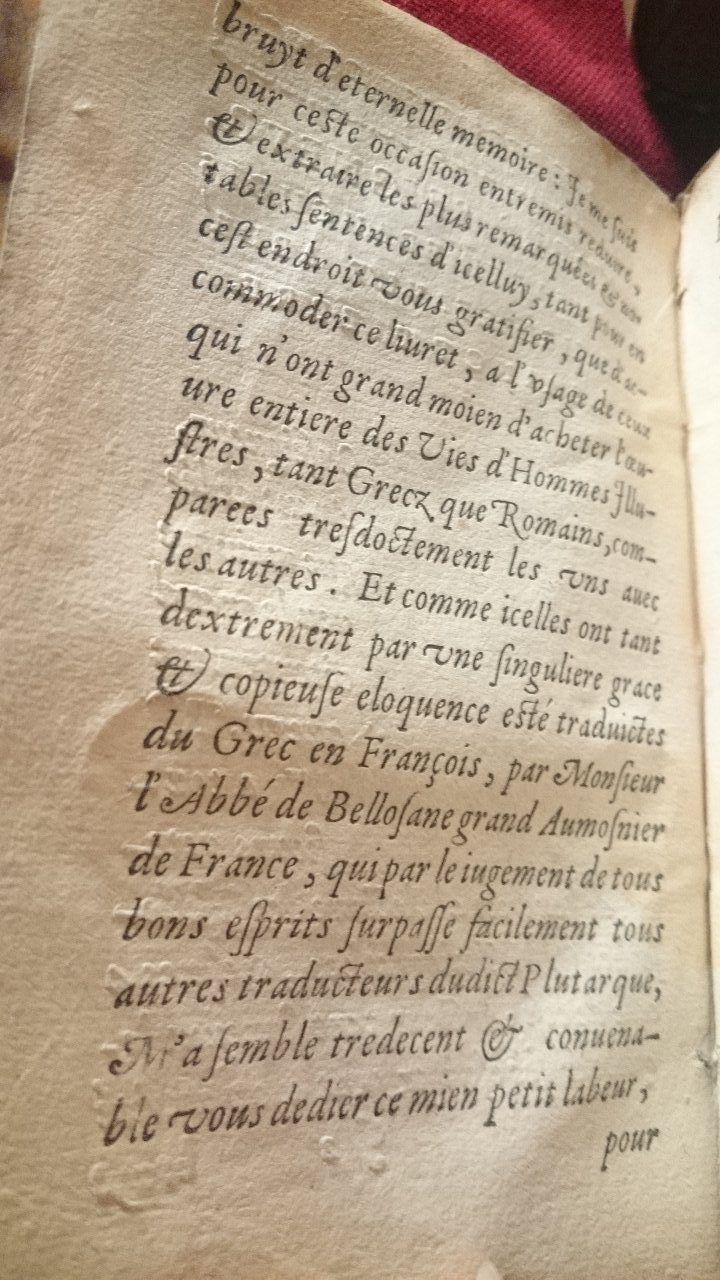 bruyt d'eternelle memoire : Ie me suis
pour ceste occasion entremis reduire,
& extraire les plus remarquées & no-
tables sentences d'icelluy, tant pour en
cest endroit vous gratifier, que d'ac-
commoder ce liuret, a l'vsage de ceux
qui n'ont grand moien d'acheter l'œu-
ure entiere des Vies d'Hommes Illu-
stres, tant Grecz que Romains, com-
parees tresdoctement les vns auec
les autres. Et comme icelles ont tant
dextrement par vne singuliere grace
& copieuse eloquence esté traduictes
du Grec en François, par Monsieur
l'Abbé de Bellosane grand Aumosnier
de France, qui par le iugement de tous
bons esprits surpasse facilement tous
autres traducteurs dudict Plutarque,
M'a semble tredecent & conuena-
ble vous dedier ce mien petit labeur,
pour